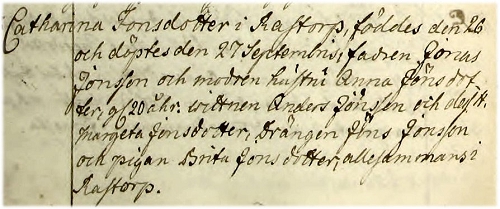 Catharina Jonsdotter i Rastorp, föddes den 26
och döptes den 27 Septembris, fadren Jonas
Jonsson och modren hustru Anna Jönsdot
ter, 20 åhr. witnen Anders Jönsson och dess H.
Margeta Jonsdotter, Drängen Jöns Jonsson
och pigan Brita Jonsdotter, allesammans i
Rastorp.